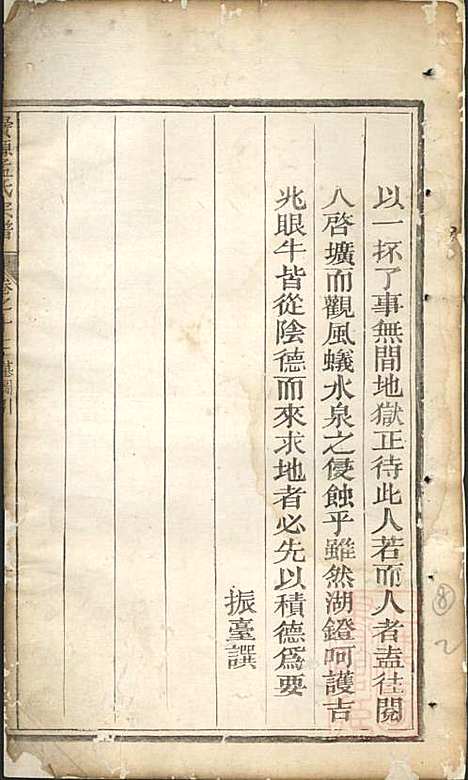 以一抔了事無間地獄正待此人若而人者盍往閱
人啓壙而觀風蟻水泉之侵蝕乎雖然湖鐙呵護吉
兆眼牛皆從陰德而來求地者必先以積德爲要
振臺譔
氏宗譜
卷之九
墓圖引
⑧
2